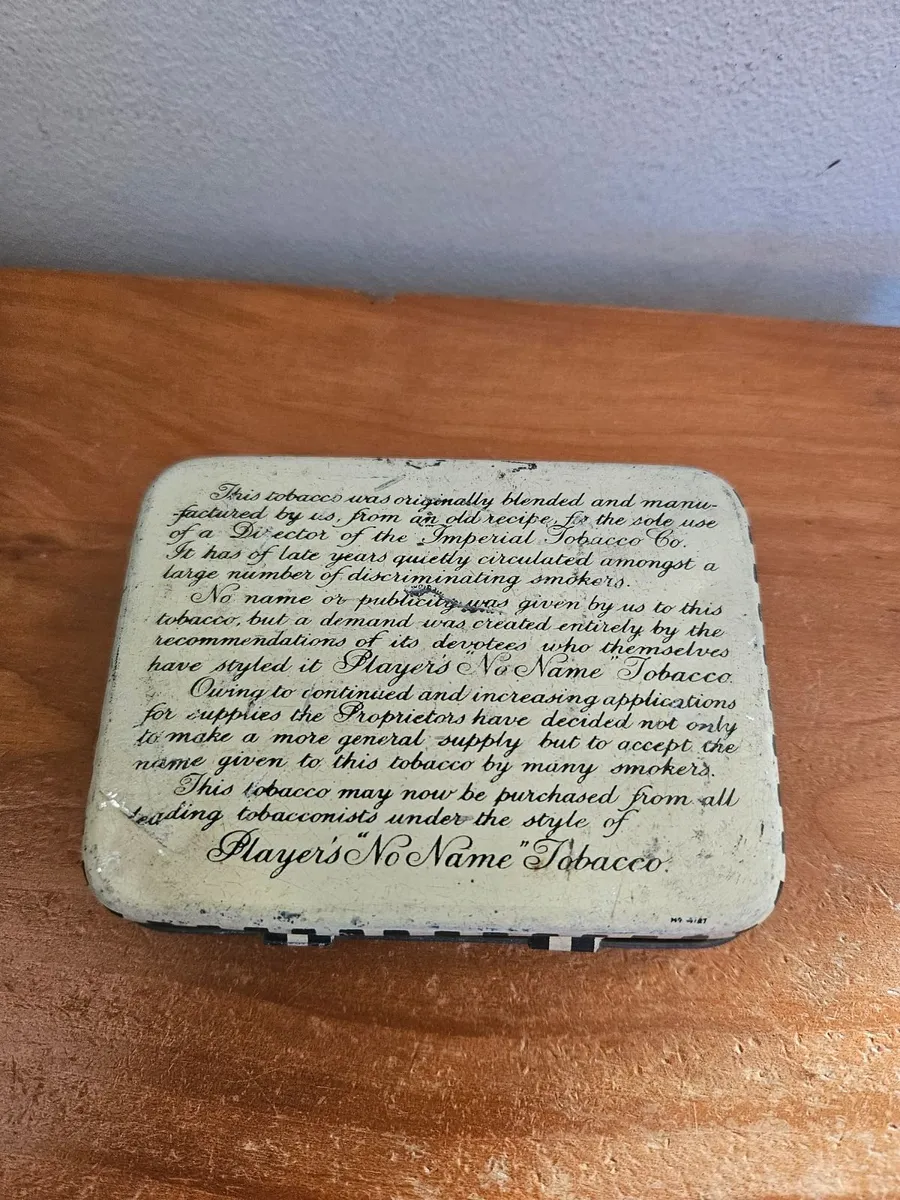 This tobacco was originally blended and manu-
factured by us, from an old recipe, for the sole use
of a Director of the Imperial Tobacco Co.
It has of late years quietly circulated amongst a
large number of discriminating smokers.
No name or publicity was given by us to this
tobacco, but a demand was created entirely by the
recommendations of its devotees who themselves
have styled it Player's "No Name" Tobacco.
Owing to continued and increasing applications
for supplies the Proprietors have decided not only
to make a more general supply but to accept the
name given to this tobacco by many smokers.
This tobacco may now be purchased from all
leading tobacconists under the style of
Player's "No Name" Tobacco.